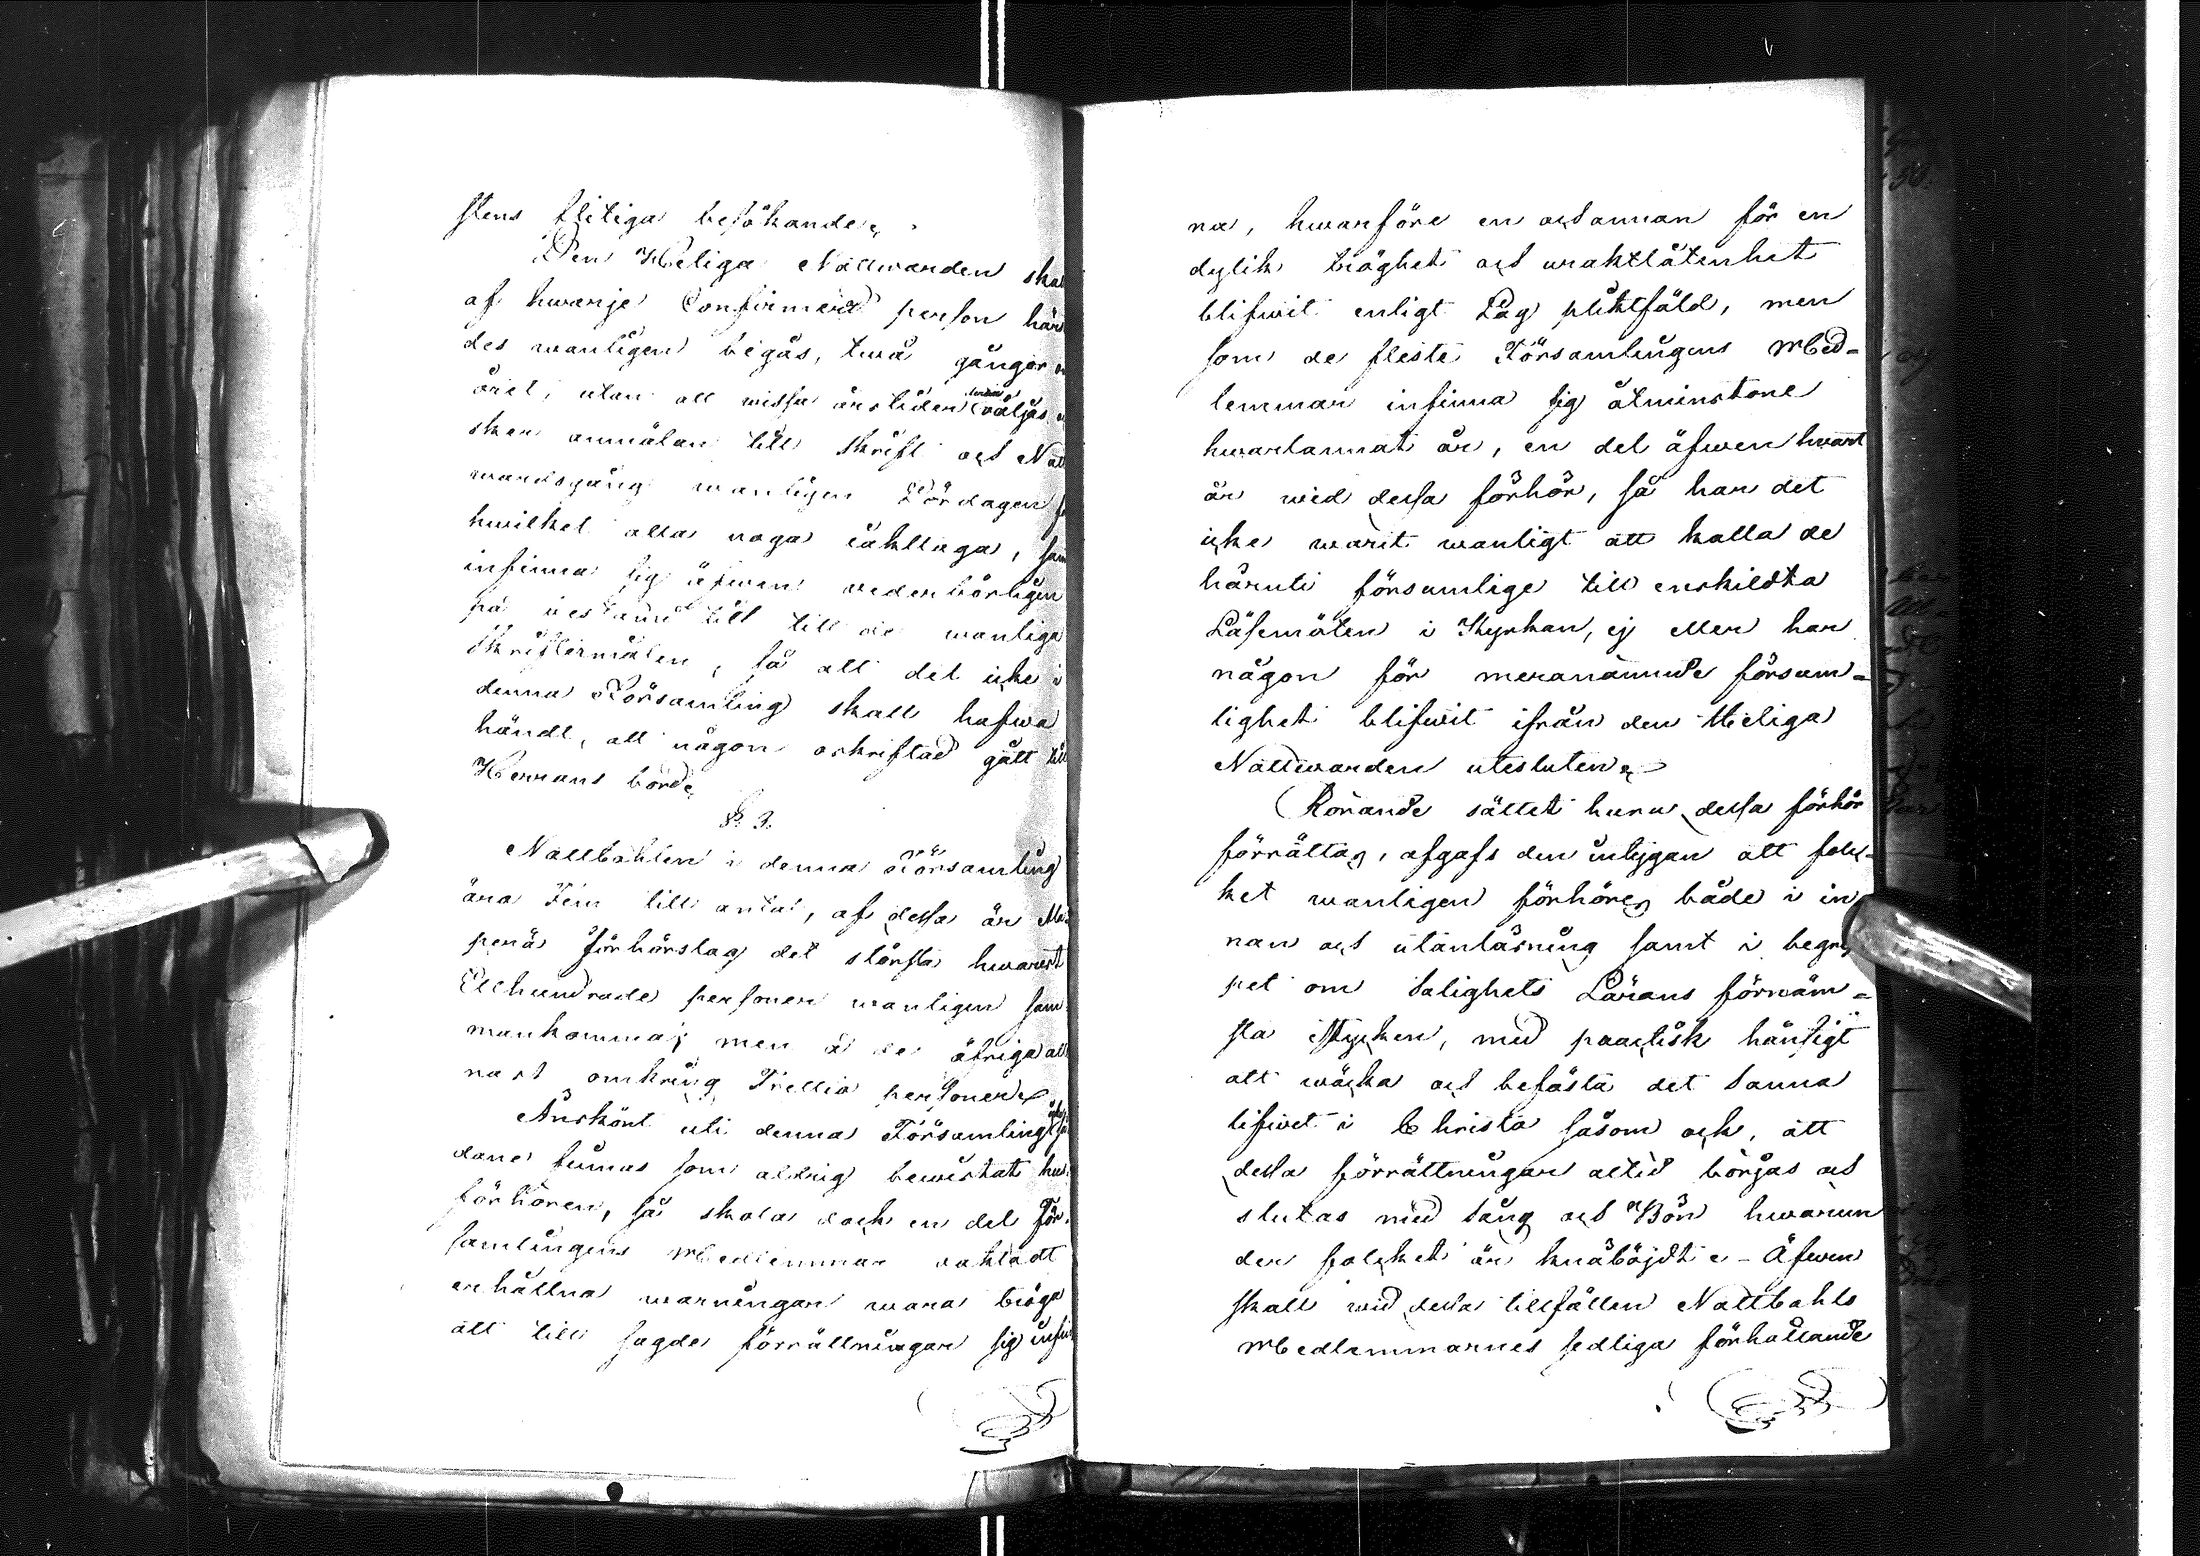 stens flitiga besökande.
Den Heliga Nattwarden skal
af hwarje Confirmerd person här
des wanligen begås, twå gångor
året, utan att wissa årstider wäljas
sker anmälan till Skrift och Natt
wardsgång wanligen Lördagen
hwilket alla noga iakttaga, sam
infinna sig äfwen wederbörligen
på till de wanliga
Skriftermålen, så att det icke i
denna Församling skall hafwa
händt, att någon oskriftad gått till
Herrans bord.
§. 3.
Nattbahlen i denna Församling
äro Fem till antal, af dessa är
perä Förhörslag det största hwarest
Etthundrade personer wanligen sam
mankomma; men å de öfriga all
nast omkring Trettio personer.
Änskönt uti denna Församling så
dane finnas som aldrig bewistat hus
förhören, så skola dock en del För
samlingens Medlemmar oaktadt
erhållna warningar wara tröga
att till sagde förrättningar sig infin
na, hwarföre en och annan för en
dylik tröghet och uraktlåtenhet
blifwit enligt Lag pliktfäld, men
som de fleste Församlingens Med-
lemmar infinna sig åtminstone
hwartannat år, en del äfwen hwart
år wid dessa förhör, så har det
icke warit wanligt att kalla de
häruti försumlige till enskildta
Läsemöten i Kyrkan, ej eller har
någon för meranämnde försum-
lighet blifwit ifrån den Heliga
Nattwarden utesluten.
Rörande sättet huru dessa förhör
förrättas, afgafs den intygan att fol-
ket wanligen förhöres både i in
nan och utanläsning samt i begrep
pet om Salighets Lärans förnäm-
sta Stycken, med practisk hänsigt
att wäcka och befästa det sanna
lifwet i Christo såsom ock, att
dessa förrättningar altid börjas och
slutas med Sång och Bön hwarun
der folcket är knäböjdt - Äfwen
skall wid dessa tillfällen Nattbahls
Medlemmarnes sedliga förhållande